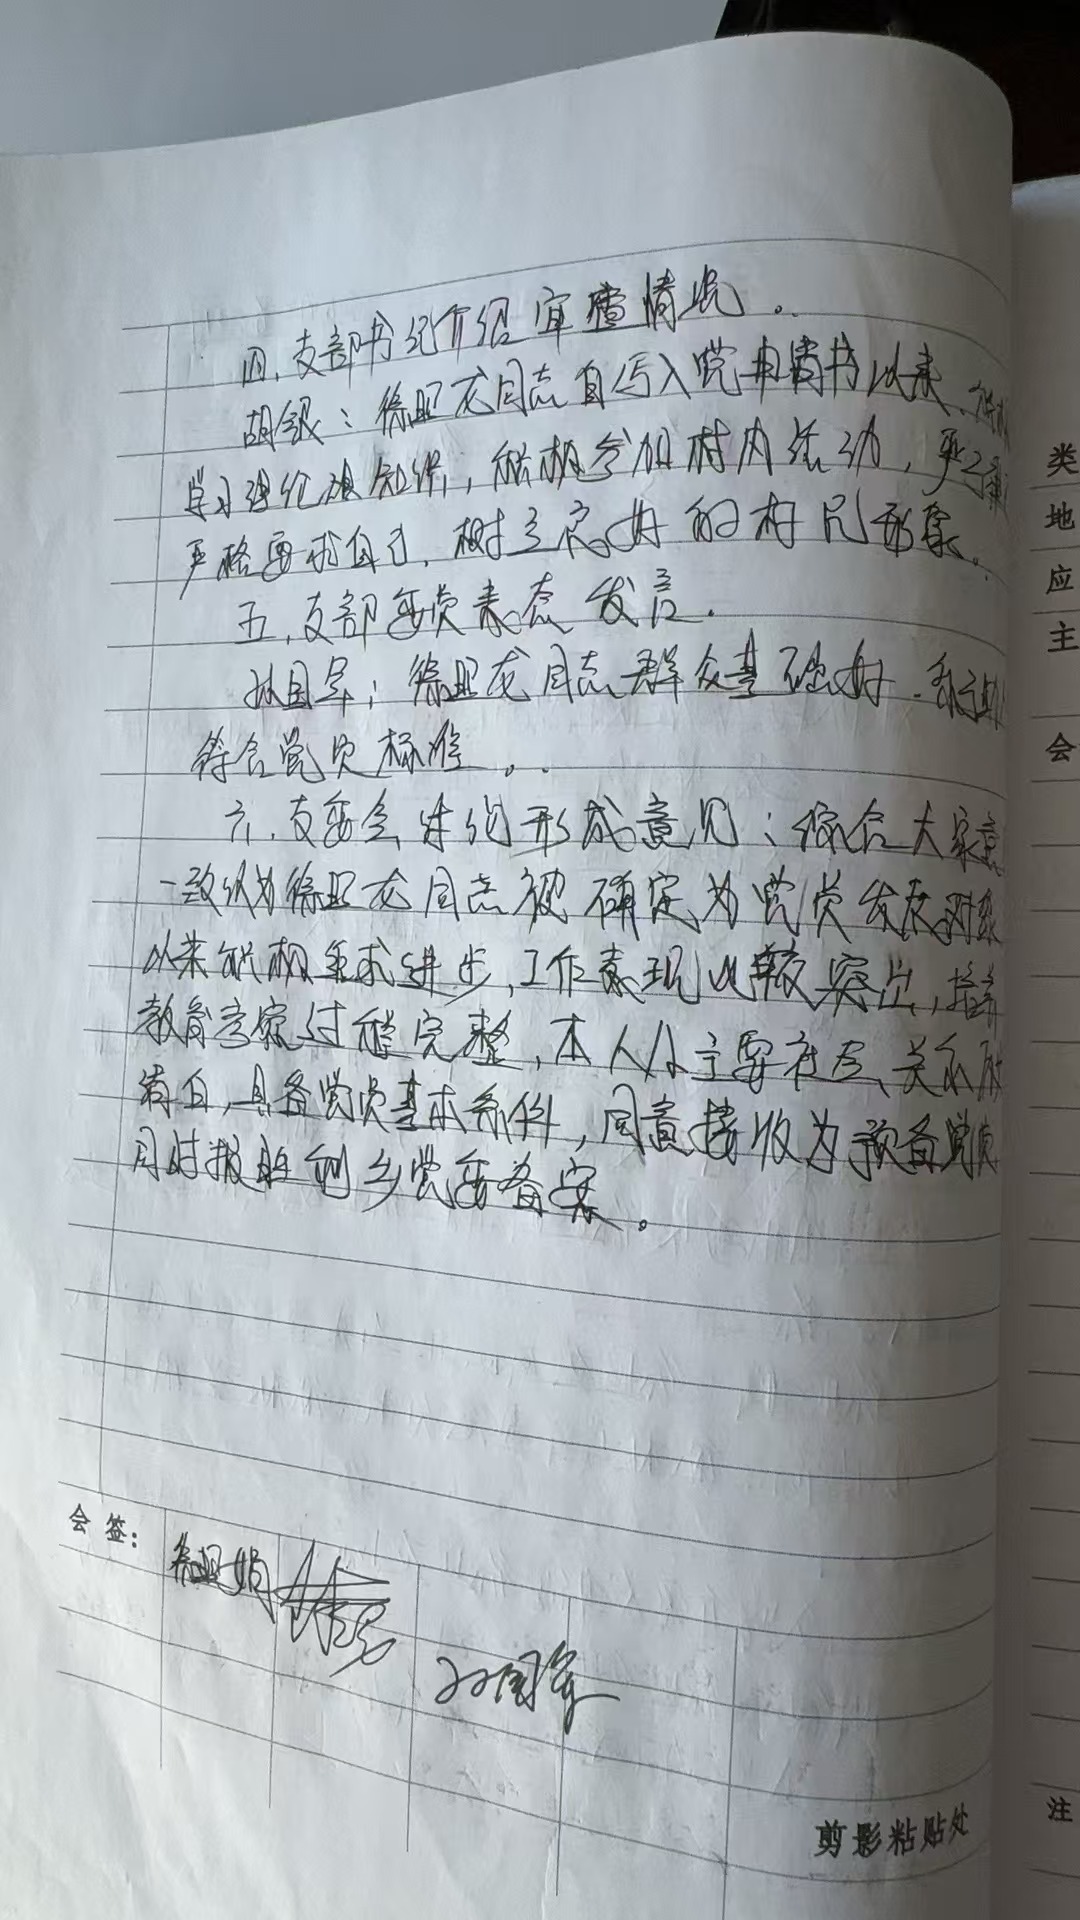 四、支部书记介绍审查情况。
胡银：徐昭龙同志自写入党申请书以来、
学习理论知识，积极参加村内活动，
严格要求自己，树立良好的村民形象。
五、支部委员表态发言.
孙国军：徐昭龙同志群众基础好.
符合党员标准。
六、支委会讨论形成意见：综合大家意
一致认为徐昭龙同志被确定为党员发展对象
以来积极要求进步，工作表现比较突出，培养
教育考察过程完整，本人及主要社会关系
清白，具备党员基本条件，同意接收为预备党员
同时报 到乡党委备案。
会签：
徐昭娟
孙国军
剪影粘贴处
类
地
应
主
会
注